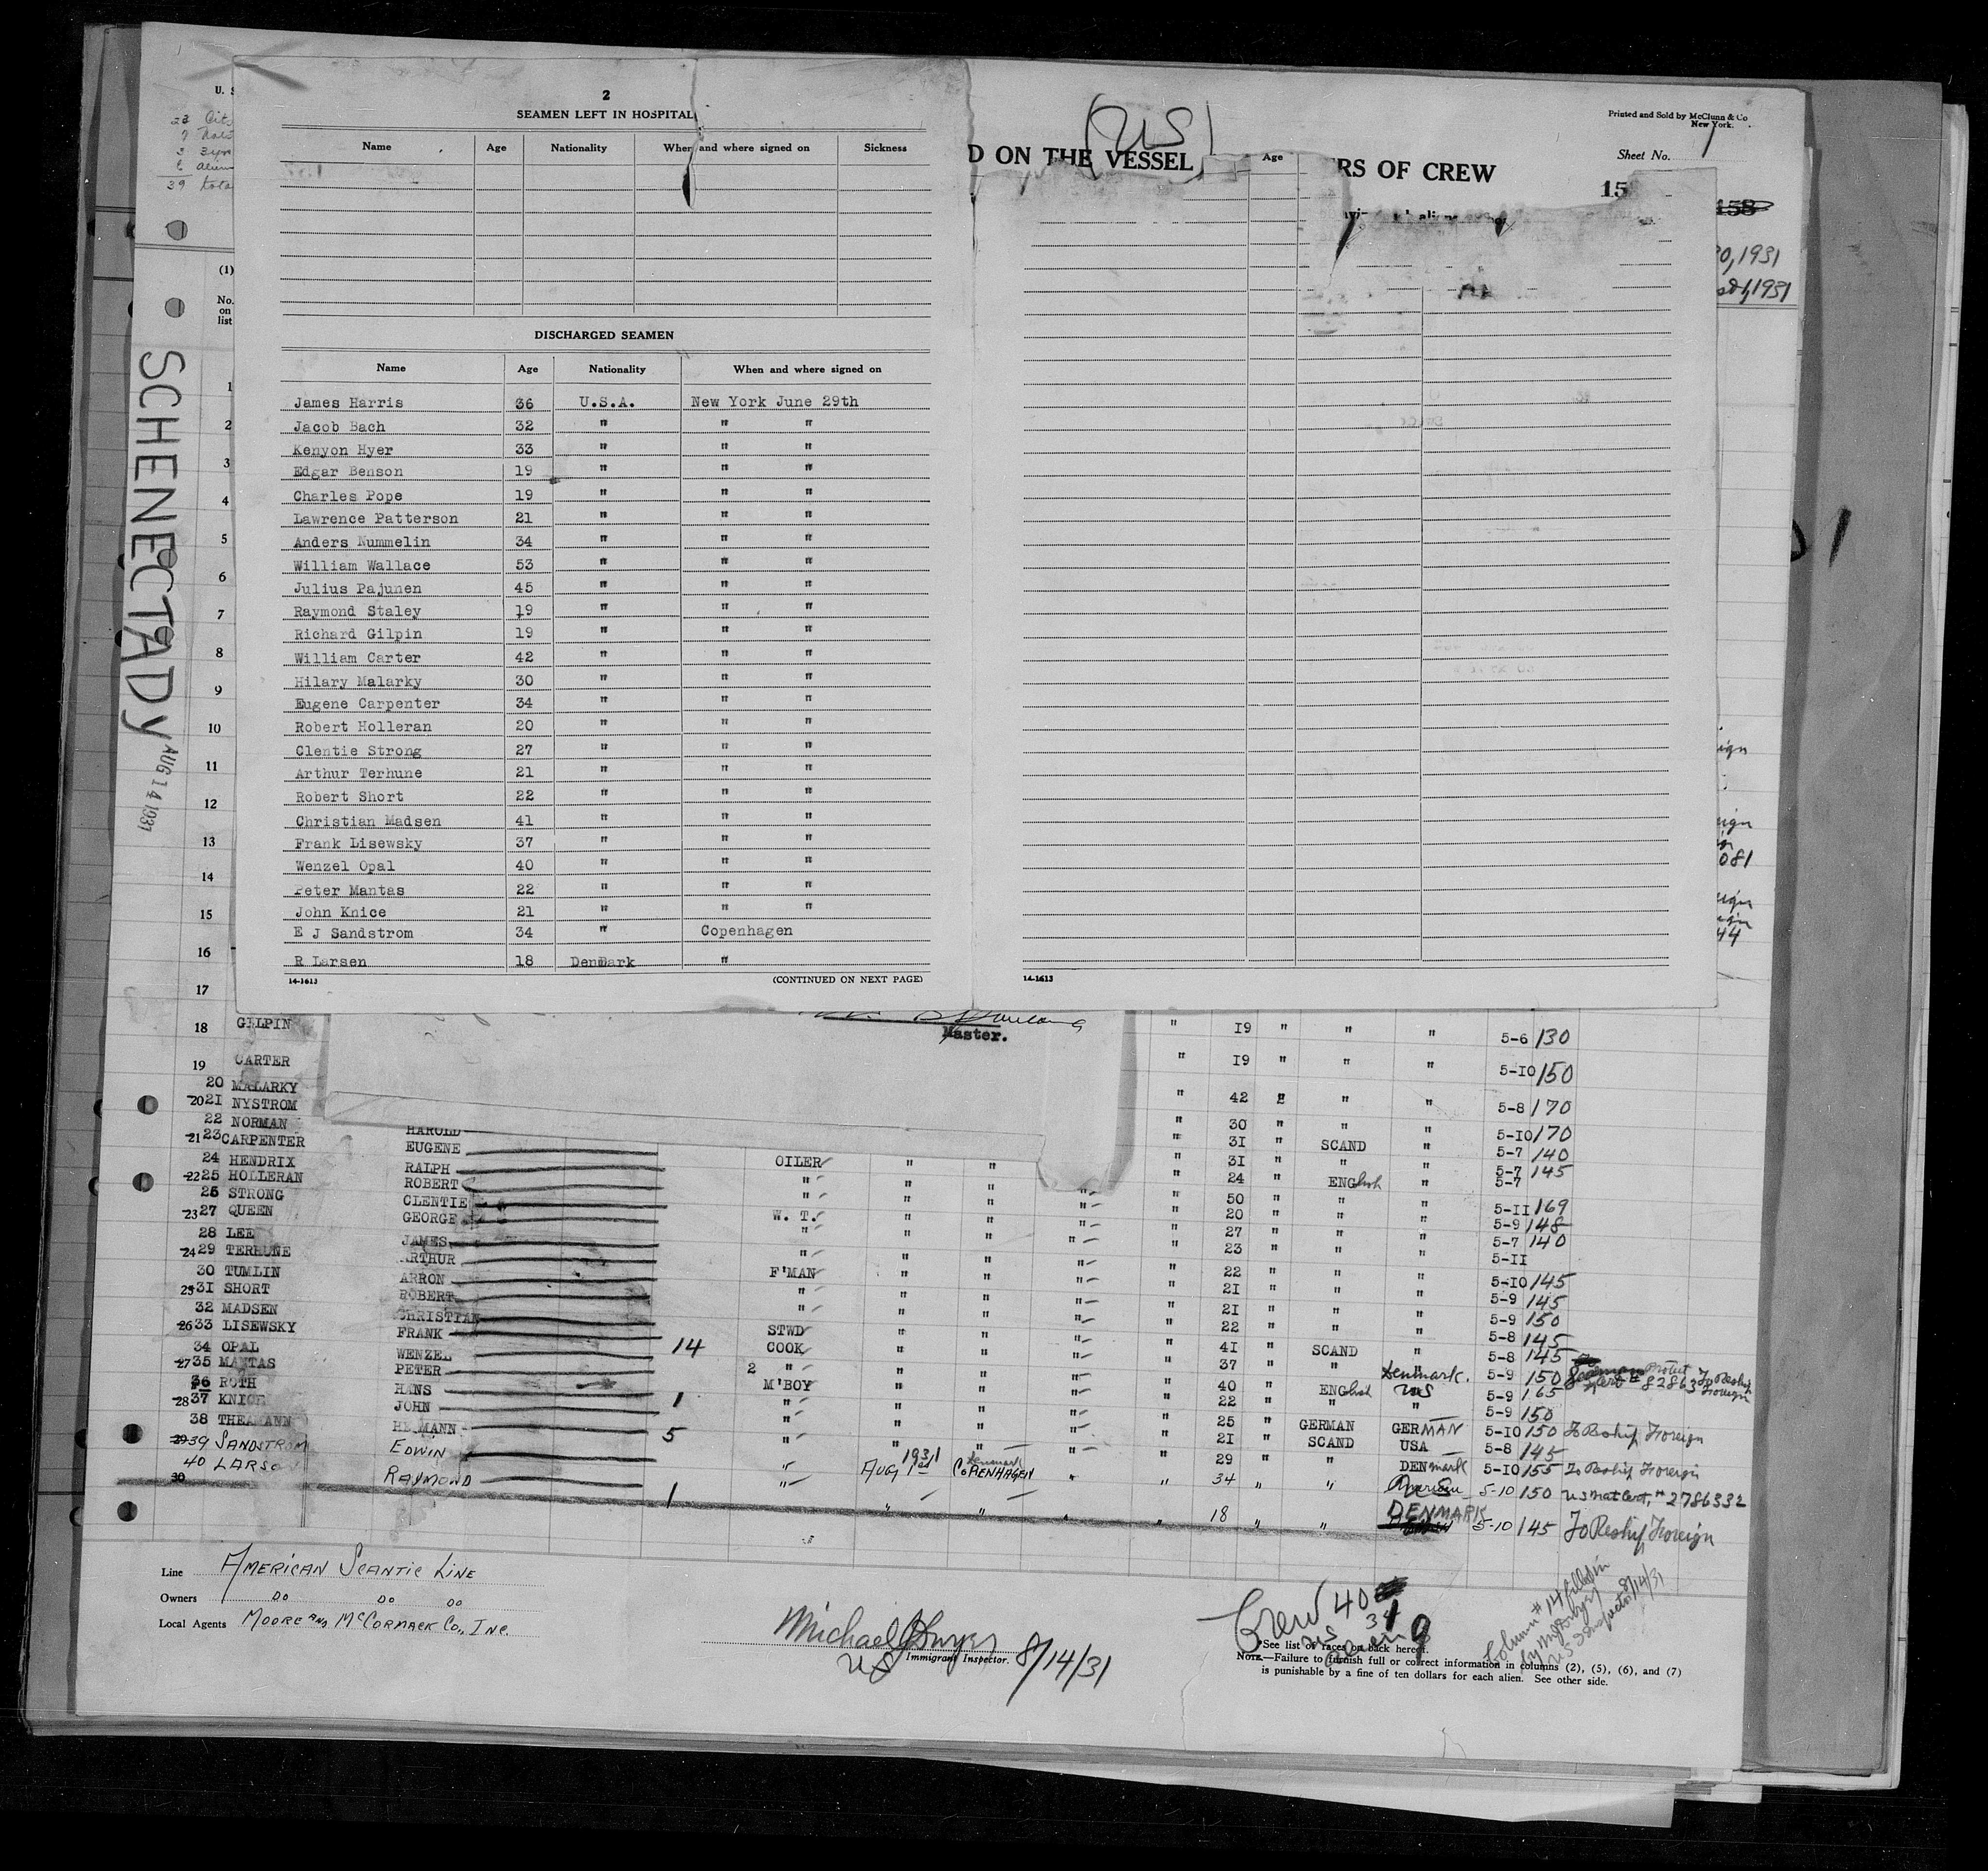 2
SEAMEN LEFT IN HOSPITAL
Name Age Nationality When and where signed on Sickness
DISCHARGED SEAMEN
Name Age Nationality When and where signed on
James Harris 36 U.S.A. New York June 29th
Jacob Bach 32 " " "
Kenyon Hyer 33 " " "
Edgar Benson 19 " " "
Charles Pope 19 " " "
Lawrence Patterson 21 " " "
Anders Nummelin 34 " " "
William Wallace 53 " " "
Julius Pajunen 45 " " "
Raymond Staley 19 " " "
Richard Gilpin 19 " " "
William Carter 42 " " "
Hilary Malarky 30 " " "
Eugene Carpenter 34 " " "
Robert Holleran 20 " " "
Clentie Strong 27 " " "
Arthur Terhune 21 " " "
Robert Short 22 " " "
Christian Madsen 41 " " "
Frank Lisewsky 37 " " "
Wenzel Opal 40 " " "
Peter Mantas 22 " " "
John Knice 21 " " "
E J Sandstrom 34 " Copenhagen
R Larsen 18 Denmark "
14-1613 (CONTINUED ON NEXT PAGE)
14-1613
(US)
D ON THE VESSEL
Age
RS OF CREW
Printed and Sold by McClunn & Co
New York.
Sheet No. 1
158
0, 1931
1, 1931
39 tota
(1)
No.
on
list
1
2
3
4
5
6
7
8
9
10
11
12
13
14
15
16
17
SCHENECTADY
AUG 14 1931
Master.
18 GILPIN " 19 " " " 5-6 130
19 CARTER " 19 " " " 5-10 150
20 MALARKY " 42 " " " 5-8 170
20 21 NYSTROM " 30 " " " 5-10 170
22 NORMAN HAROLD " 31 " SCAND " 5-7 140
21 23 CARPENTER EUGENE " 31 " " " 5-7 145
24 HENDRIX RALPH OILER " " " 24 " English " 5-7
22 25 HOLLERAN ROBERT " " " " 50 " " " 5-11 169
26 STRONG CLENTIE " " " " 20 " " " 5-9 148
23 27 QUEEN GEORGE W. T. " " " 27 " " " 5-7 140
28 LEE JAMES " " " " 23 " " " 5-11
24 29 TERHUNE ARTHUR " " " " 22 " " " 5-10 145
30 TUMLIN ARRON F'MAN " " " 21 " " " 5-9 145
25 31 SHORT ROBERT " " " " 21 " " " 5-9 150
32 MADSEN CHRISTIAN " " " 22 " " " 5-8 145
26 33 LISEWSKY FRANK 14 STWD " " " 41 " SCAND " 5-8 145
34 OPAL WENZEL COOK " " " 37 " " Denmark. 5-9 150 To Reship Foreign
27 35 MANTAS PETER 2 " " " " 40 " English US 5-9 165
36 ROTH HANS M'BOY " " " 22 " " " 5-9 150
28 37 KNICE JOHN 1 " " " " 25 " GERMAN GERMAN 5-10 150 To Reship Foreign
38 THEAMANN HERMANN 5 " " " " 21 " SCAND USA 5-8 145
29 39 SANDSTROM EDWIN " " " " 29 " " DENmark 5-10 155 To Reship Foreign
40 LARSON RAYMOND " AUG 1st 1931 Denmark COPENHAGEN " 34 " " US 5-10 150 US Nat Cert, # 2786332
30 1 " " " " 18 " " DENMARK 5-10 145 To Reship Foreign
Line AMERICAN SCANTIC LINE
Owners DO DO DO
Local Agents MOORE AND McCORMACK Co., INC.
Michael J Dwyer
US Immigrant Inspector. 8/14/31
Crew 40
US 31
Alien 9
See list of races on back hereof.
NOTE.—Failure to furnish full or correct information in columns (2), (5), (6), and (7)
is punishable by a fine of ten dollars for each alien. See other side.
Column #14 filled in
by
US Inspector 8/14/31